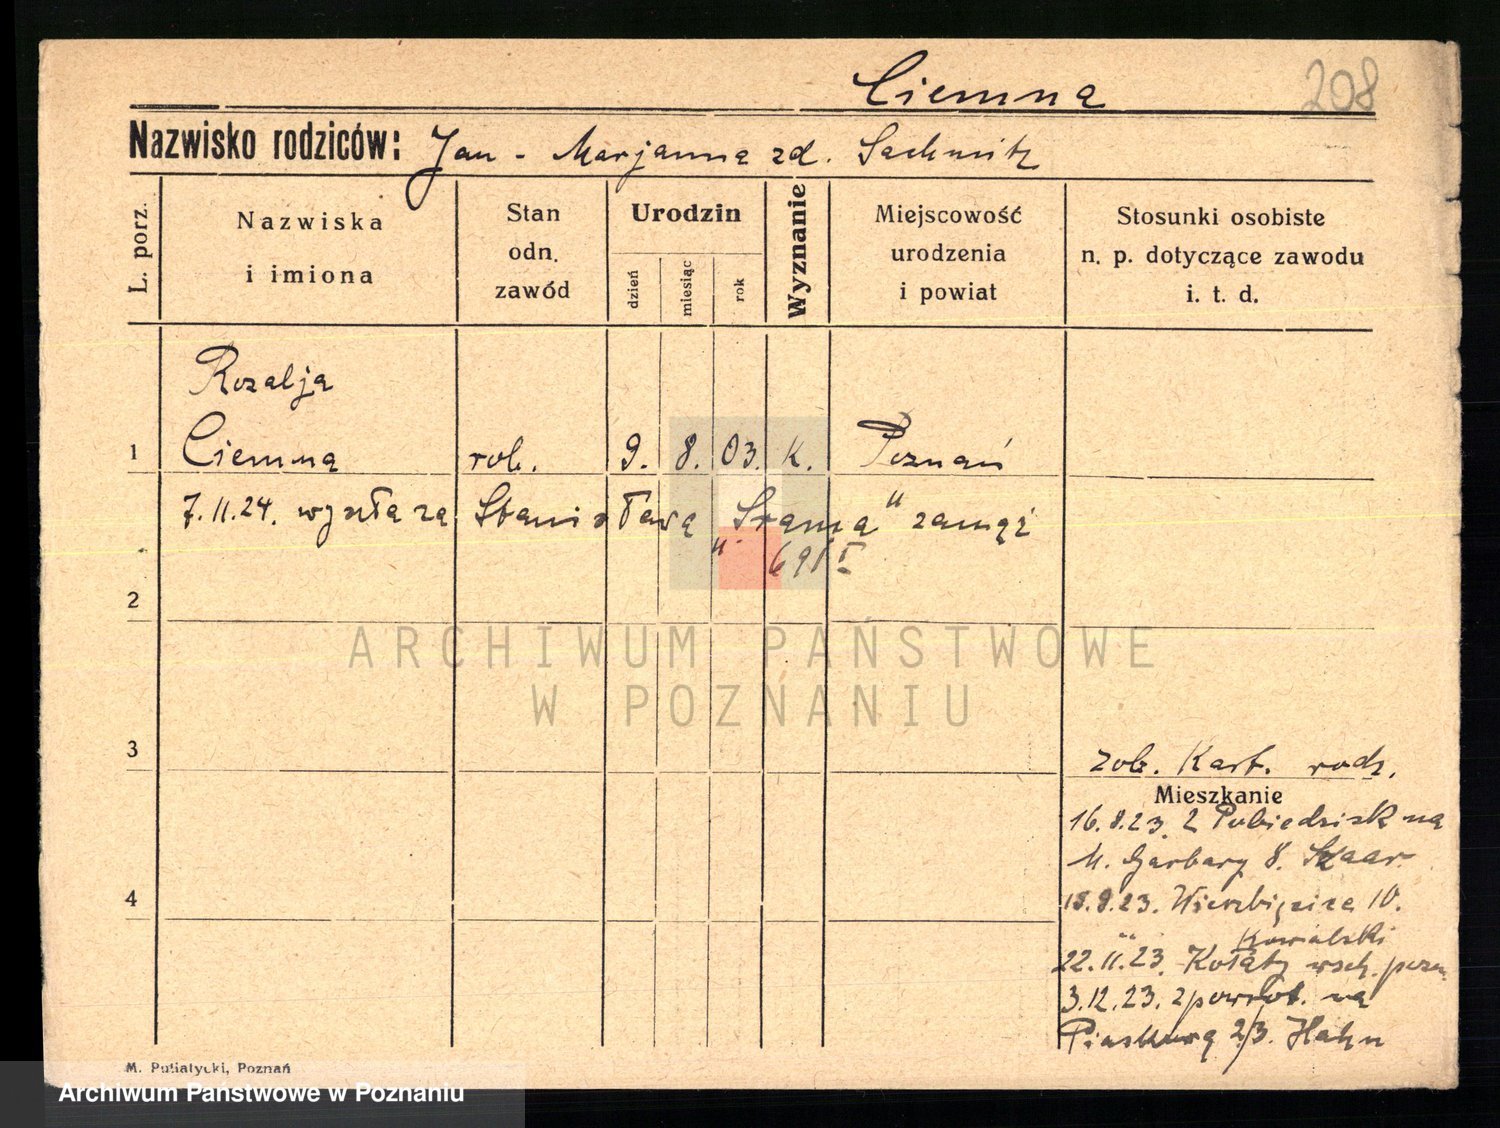 Ciemna 208
Nazwisko rodziców: Jan - Marjanna zd. Sachwitz
L. porz.
Nazwiska i imiona
Stan odn. zawód
Urodzin
dzień miesiąc rok
Wyznanie
Miejscowość urodzenia i powiat
Stosunki osobiste n. p. dotyczące zawodu i. t. d.
Rozalja
1 Ciemna rob. 9. 8. 03. K. Poznań
7.11.24. wyszła za Stanisława "Szama" zamąż
691 I
2
ARCHIWUM PAŃSTWOWE
W POZNANIU
3
zob. Kart. rodz.
Mieszkanie
16.8.23. z Pobiedzisk na
M. Garbary 8.
4
18.8.23. Wierzbięcice 10.
Kowalski
22.11.23. Kołaty wsch. pozn.
3.12.23. z powrot. na
Piaskową 2/3. Hahn
M. Putiatycki, Poznań
Archiwum Państwowe w Poznaniu